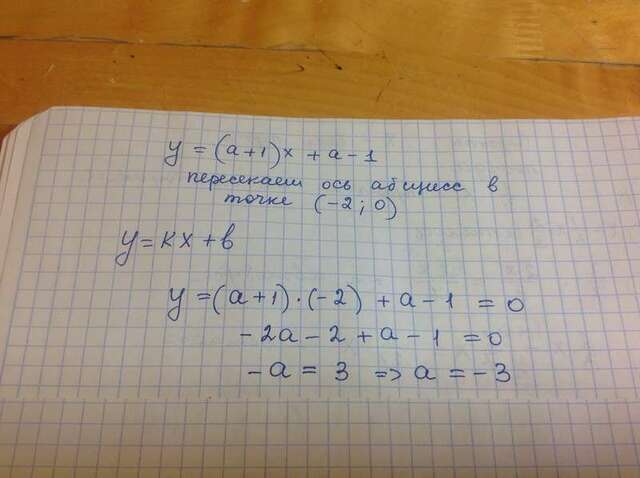 y = (a+1)x + a - 1
пересекает ось абцисс в
точке (-2; 0)
y = kx + b
y = (a+1)·(-2) + a - 1 = 0
-2a - 2 + a - 1 = 0
-a = 3 => a = -3